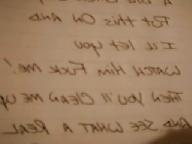 PUT THIS ON AND
I'LL LET YOU
WATCH HIM FUCK ME!
THEN YOU'LL CLEAN ME UP
AND SEE WHAT A REAL